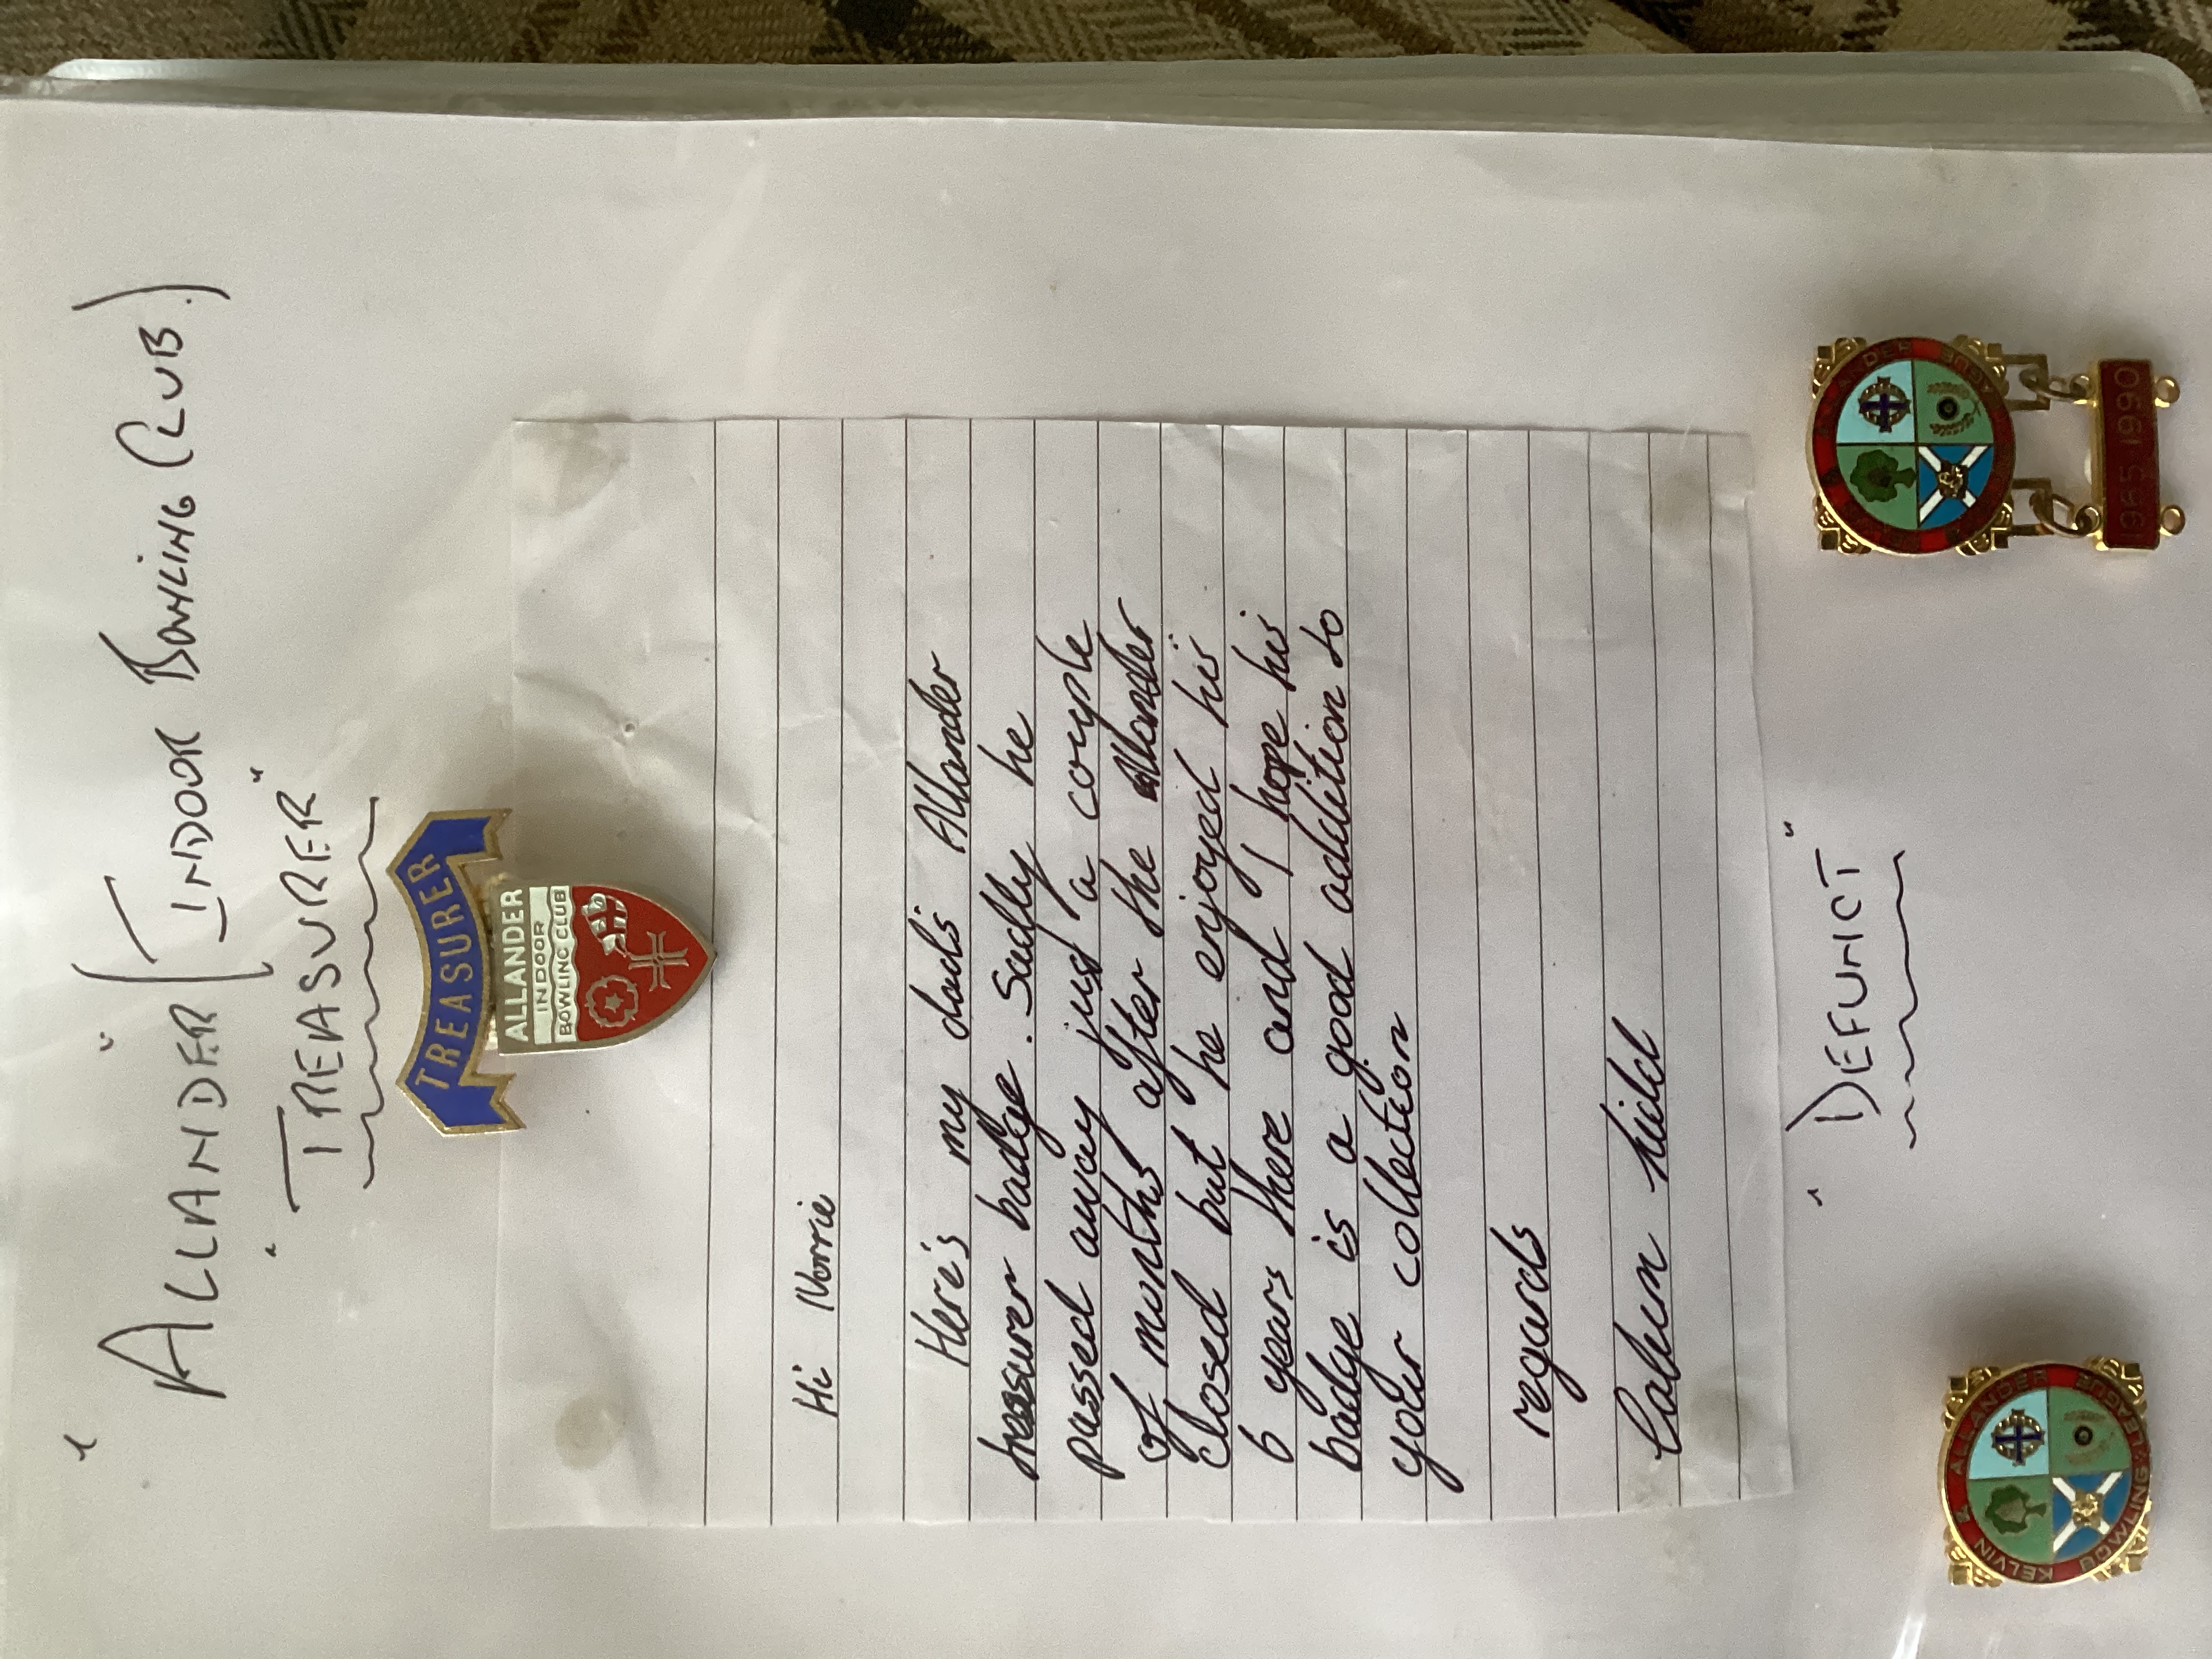 "ALLANDER" (INDOOR BOWLING CLUB.)
"TREASURER"
TREASURER
ALLANDER
INDOOR
BOWLING CLUB
Hi Norrie
Here's my dads Allander
treasurer badge. Sadly he
passed away just a couple
of months after the Allander
closed but he enjoyed his
6 years there and I hope his
badge is a good addition to
your collection
regards
Calum
"DEFUNCT"
KELVIN & ALLANDER
BOWLING LEAGUE
ALLANDER
1965-1990